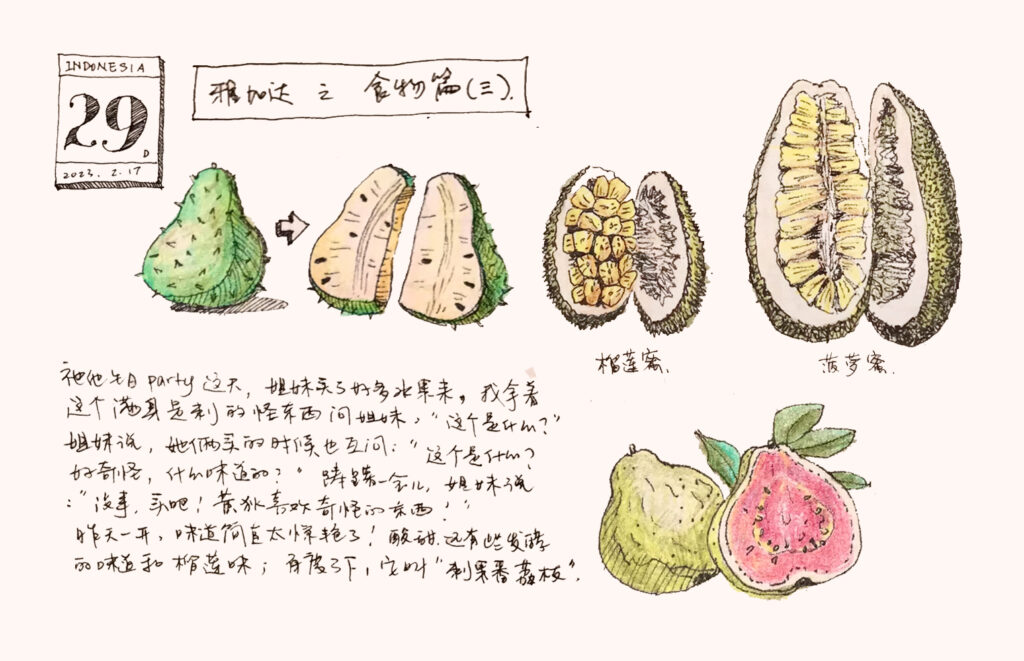 INDONESIA
29
D
2023. 2. 17
雅加达 之 食物篇(三).
榴莲蜜.
菠萝蜜.
party 这天, 姐妹买了好多水果来, 我拿着
这个满身是刺的怪东西问姐妹, "这个是什么?"
姐妹说, 她俩买的时候也互问: "这个是什么?
好奇怪, 什么味道的?" 一会儿, 姐妹说
: "没事, 买吧! 喜欢奇怪的东西!"
昨天一开, 味道简直太惊艳了! 酸甜 还有些发酵
的味道和 榴莲味; 百度了下, 它叫 "刺果番荔枝".